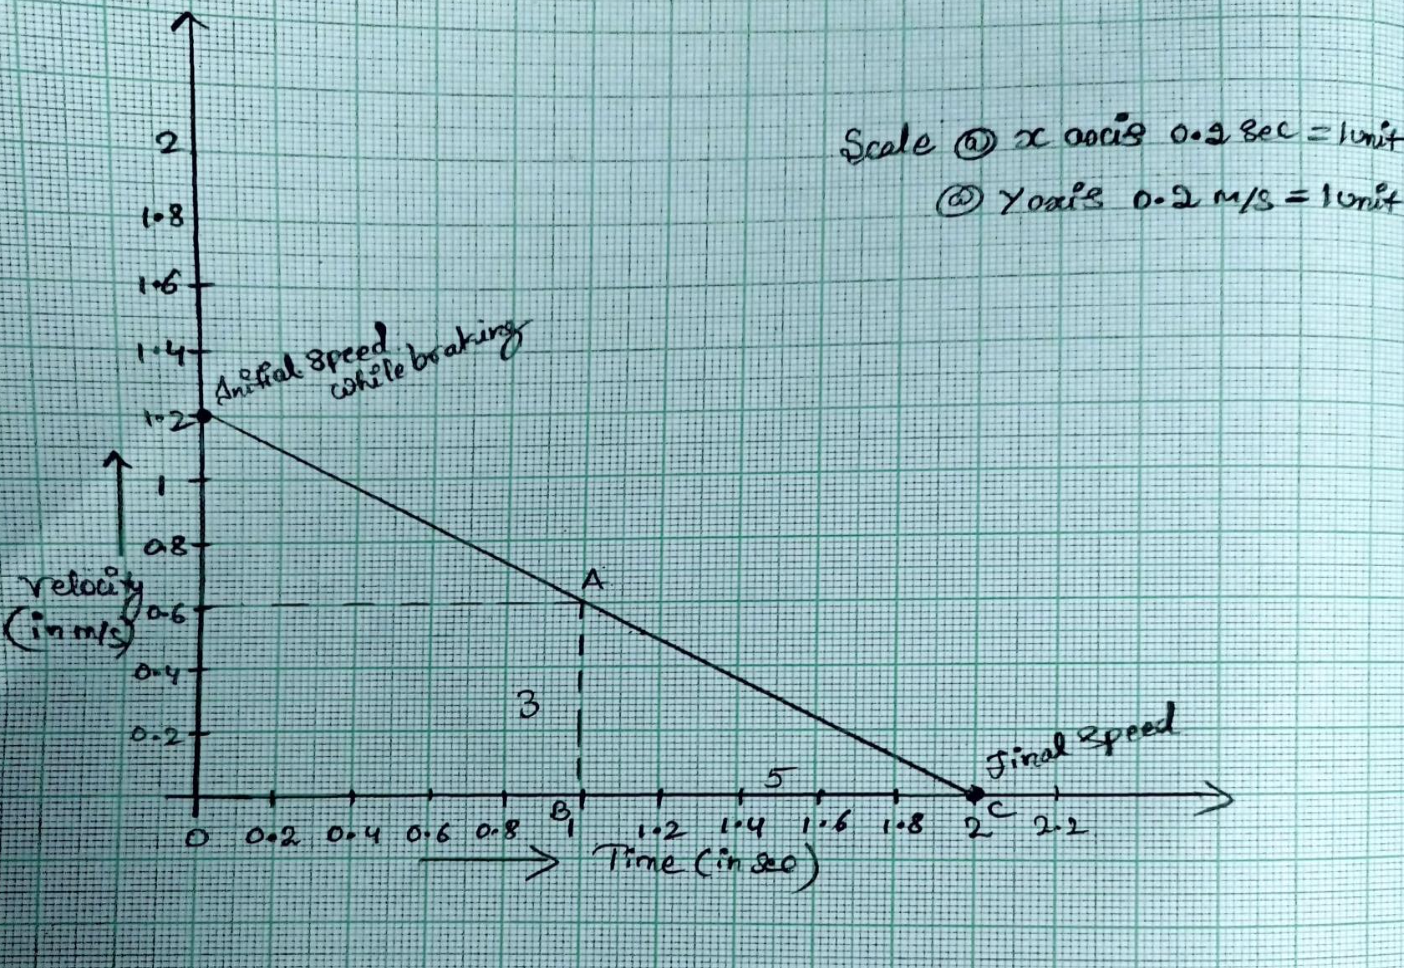 Scale @ x axis 0.2 sec = 1unit
@ Y axis 0.2 m/s = 1unit
2
1.8
1.6
1.4
Initial speed
while braking
1.2
1
0.8
A
Velocity
(in m/s)
0.6
0.4
3
0.2
Final speed
5
B
C
0 0.2 0.4 0.6 0.8 1 1.2 1.4 1.6 1.8 2 2.2
Time (in sec)